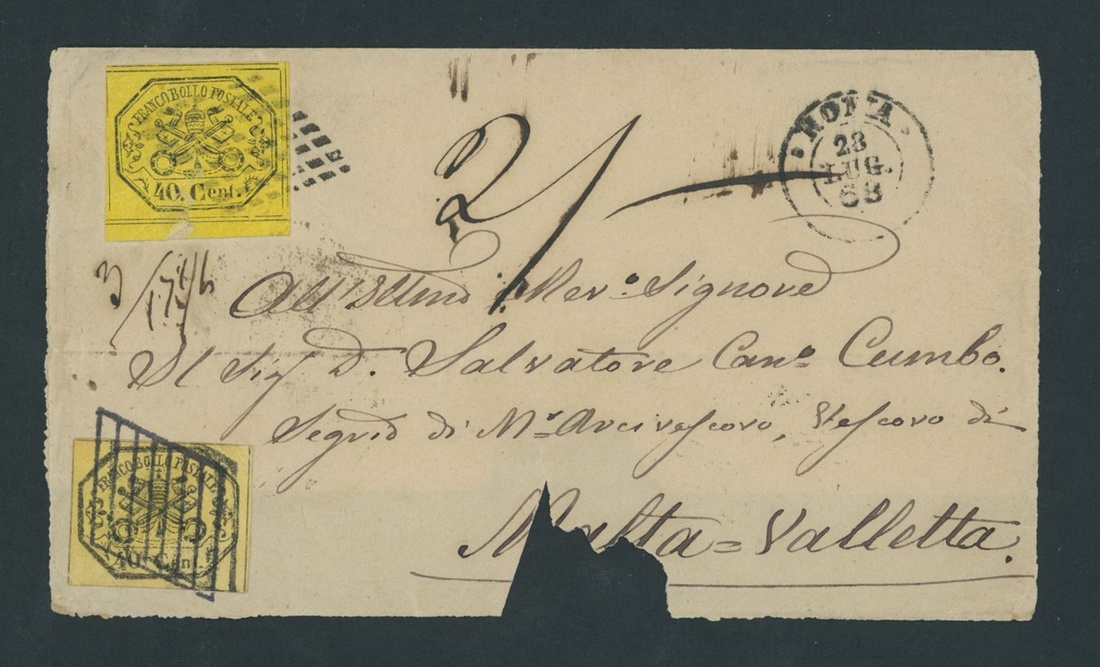 FRANCO BOLLO POSTALE
40. Cent.
ROMA
23
LUG.
68
2/
All' Illmo Rev.o Signore
Il Sig D. Salvatore Can.o Cumbo.
Segrio di M.r Arcivescovo, Vescovo di
Malta = Valletta.
FRANCO BOLLO POSTALE
40. Cent.